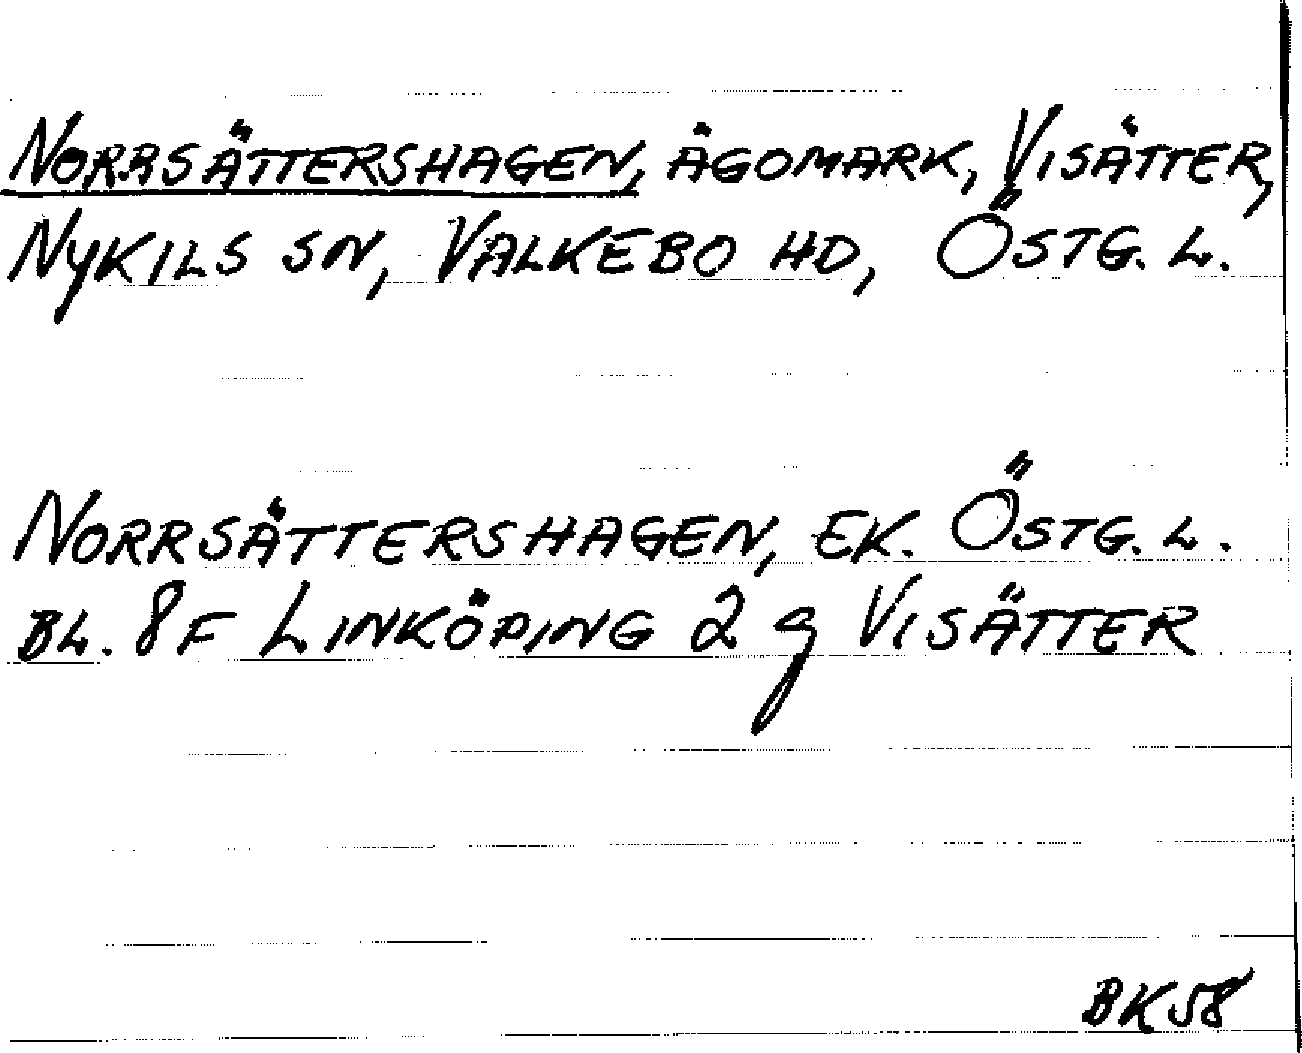 NORRSÄTTERSHAGEN, ÄGOMARK, VISÄTTER,
NYKILS SN, VALKEBO HD, ÖSTG. L.
NORRSÄTTERSHAGEN, EK. ÖSTG. L.
BL. 8F LINKÖPING 2 g VISÄTTER
BK58